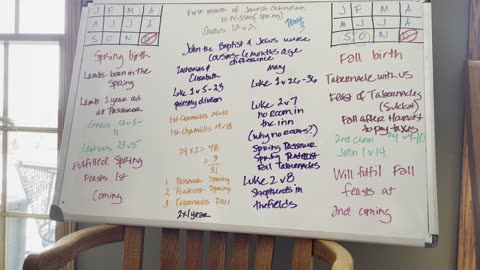 J F M A
M J J A
S O N D
Spring birth
Lambs born in the
Spring
Lamb 1 year old
at Passover
Exodus 12 v 5-
11
Leviticus 23 v 5
Fulfilled Spring
Feasts 1st
Coming
First month of Jewish Calendar
is Nissan (Spring)
Exodus 12 v 2
John the Baptist & Jesus were
cousins 6 months age
difference
Zacharias &
Elizabeth
Luke 1 v 5-23
priestly division
1st Chronicles 24 v 10
1st Chronicles 24 v 18
24 x 2 = 48
+ 3
51
1 Passover Spring
2 Pentecost Spring
3 Tabernacles Fall
2x1 year
Mary
Luke 1 v 26-36
Luke 2 v 7
no room in
the inn
(Why no rooms?)
Spring Passover
Spring Pentecost
Fall Tabernacles
Luke 2 v 8
Shepherds in
the fields
J F M A
M J J A
S O N D
Fall birth
Tabernacle with us
Feast of Tabernacles
(Sukkot)
Fall after Harvest
to pay taxes
2nd Chron
John 1 v 14
Will fulfil Fall
feasts at
2nd coming